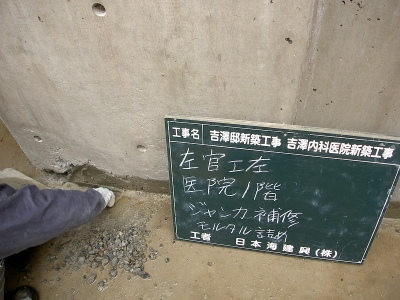 工事名 吉澤邸新築工事 吉澤内科医院新築工事
左官工左
医院1階
ジャンカ補修
モルタル詰め
工者 日本海建興(株)